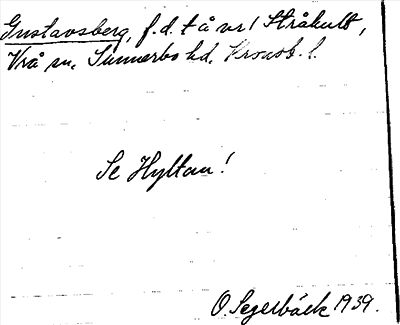 Gustavsberg, f.d. t å nr 1 Stråkult,
Vrå sn, Sunnerbo hd, Kronob. l.
Se Hyltan!
O. Segerbäck 1939.